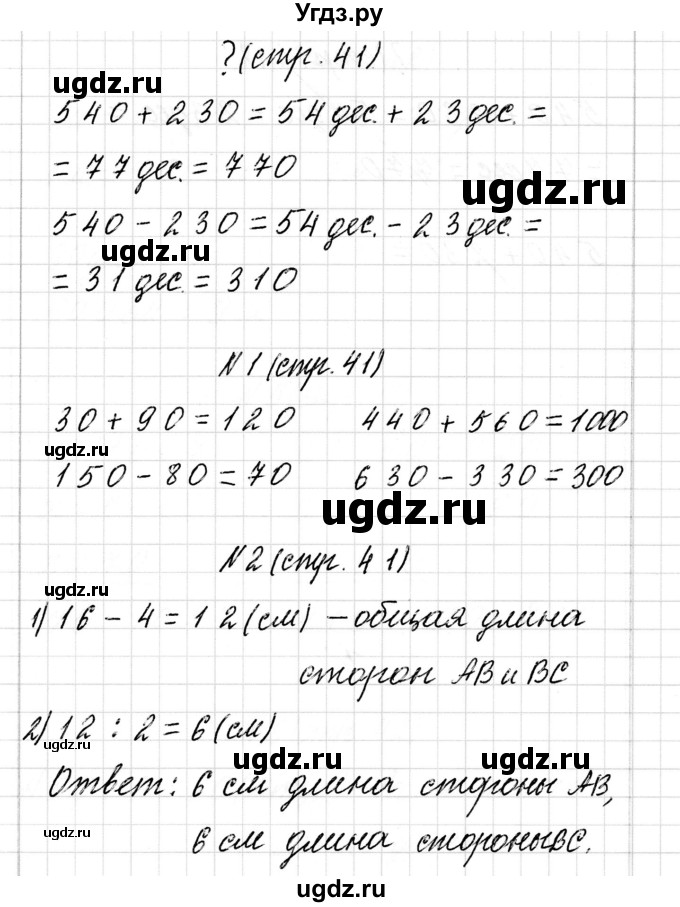 Угдз.ру
? (стр. 41)
ugdz.ru
540 + 230 = 54 дес. + 23 дес. =
= 77 дес. = 770
ugdz.ru
540 - 230 = 54 дес. - 23 дес. =
ugdz.ru
= 31 дес. = 310
N1 (стр. 41)
30 + 90 = 120 440 + 560 = 1000
ugdz.ru
150 - 80 = 70 630 - 330 = 300
ugdz.ru
N2 (стр. 41)
ugdz.ru
1) 16 - 4 = 12 (см) - общая длина
сторон AB и BC
2) 12 : 2 = 6 (см)
ugdz.ru ugdz.ru
Ответ: 6 см длина стороны AB,
ugdz.ru
6 см длина стороны BC.
ugdz.ru